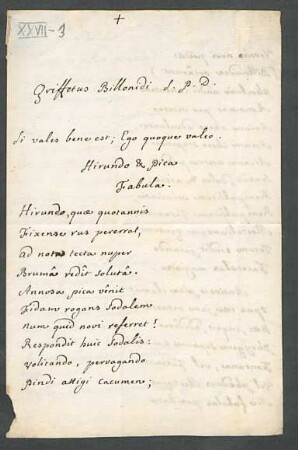 +
XXVII-3
Griffetus Billonidi S. P. D.
Si vales bene est; Ego quoque valeo.
Hirundo & Pica
Fabula.
Hirundo, quæ quotannis
Fixense rus pererrat,
ad nota tecta nuper
Brumâ redit solutâ.
Annosa pica venit
Fidam rogans Sodalem
num quid novi referret!
Respondit huic Sodalis:
volitando, pervagando
Pindi attigi cacumen;